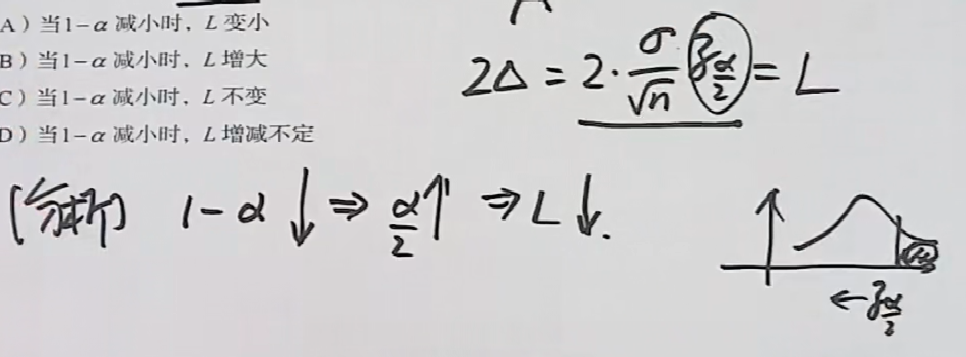 A）当1-α 减小时，L 变小
B）当1-α 减小时，L 增大
C）当1-α 减小时，L 不变
D）当1-α 减小时，L 增减不定
2Δ = 2·σ/√n z_{α/2} = L
[分析] 1-α ↓ ⇒ α/2 ↑ ⇒ L ↓.
← z_{α/2}